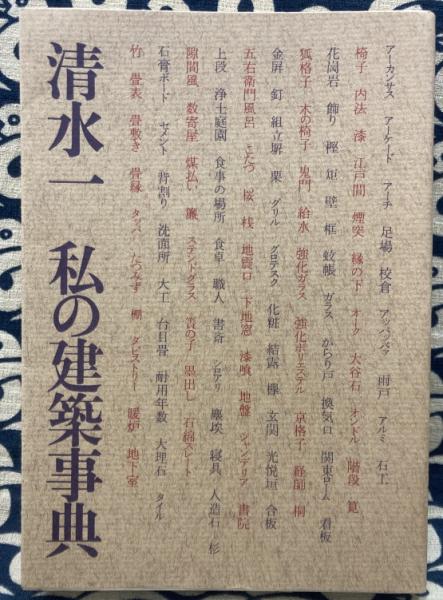 アーカンサス アーケード アーチ 足場 校倉 アッパッパァ 雨戸 アルミ 石工
椅子 内法 漆 江戸間 煙突 縁の下 オーク 大谷石 オンドル 階段 筧
花崗岩 飾り 樫 矩 壁 框 蚊帳 ガラス からり戸 換気口 関東ローム 看板
狐格子 木の椅子 鬼門 給水 強化ガラス 強化ポリエステル 京格子 経師 桐
金屏 釘 組立塀 栗 グリル グロテスク 化粧 結露 欅 玄関 光悦垣 合板
五右衛門風呂 こたつ 桜 桟 地震口 下地窓 漆喰 地盤 シャンデリア 書院
上段 浄土庭園 食事の場所 食卓 職人 書斎 シロアリ 塵埃 寝具 人造石 杉
隙間風 数寄屋 煤払い 簾 ステンドグラス 簀の子 墨出し 石綿スレート
石膏ボード セメント 背割り 洗面所 大工 台目畳 耐用年数 大理石 タイル
竹 畳表 畳敷き 畳縁 タッパ 棚 タピストリー 暖炉 地下室
清水一 私の建築事典